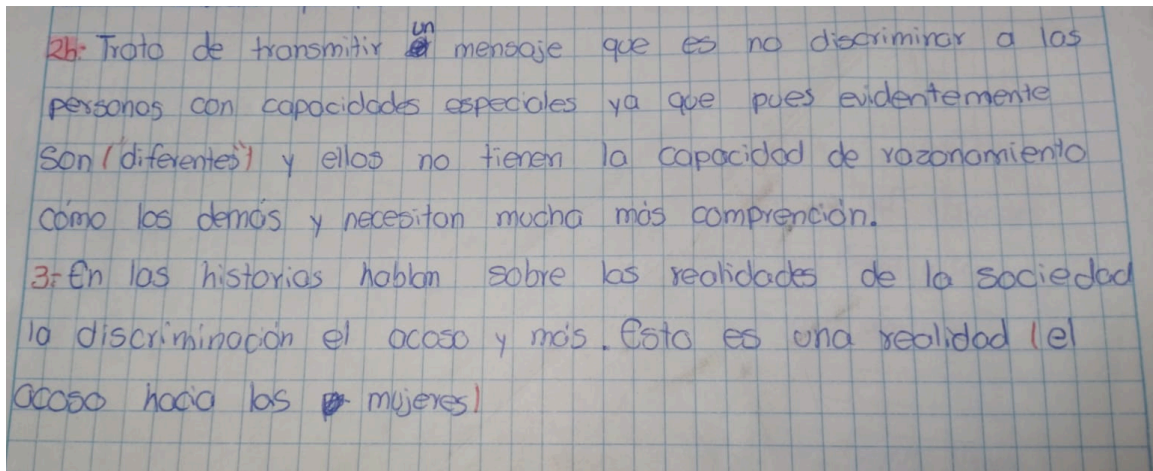 2b: Trata de transmitir un mensaje que es no discriminar a las
personas con capacidades especiales ya que pues evidentemente
son (diferentes") y ellos no tienen la capacidad de razonamiento
cómo los demás y necesitan mucha más comprención.
3: En las historias hablan sobre las realidades de la sociedad
la discriminación el acoso y más. Esta es una realidad (el
acoso hacia las mujeres)